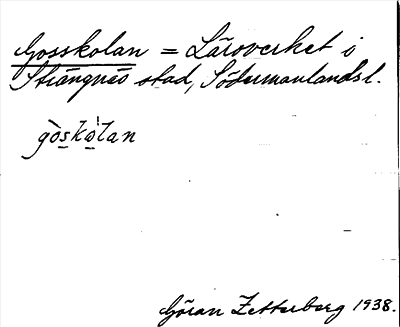 Gosskolan = Läroverket i
Strängnäs stad, Södermanlandsl.
gòskὼlan
Göran Zetterberg 1938.